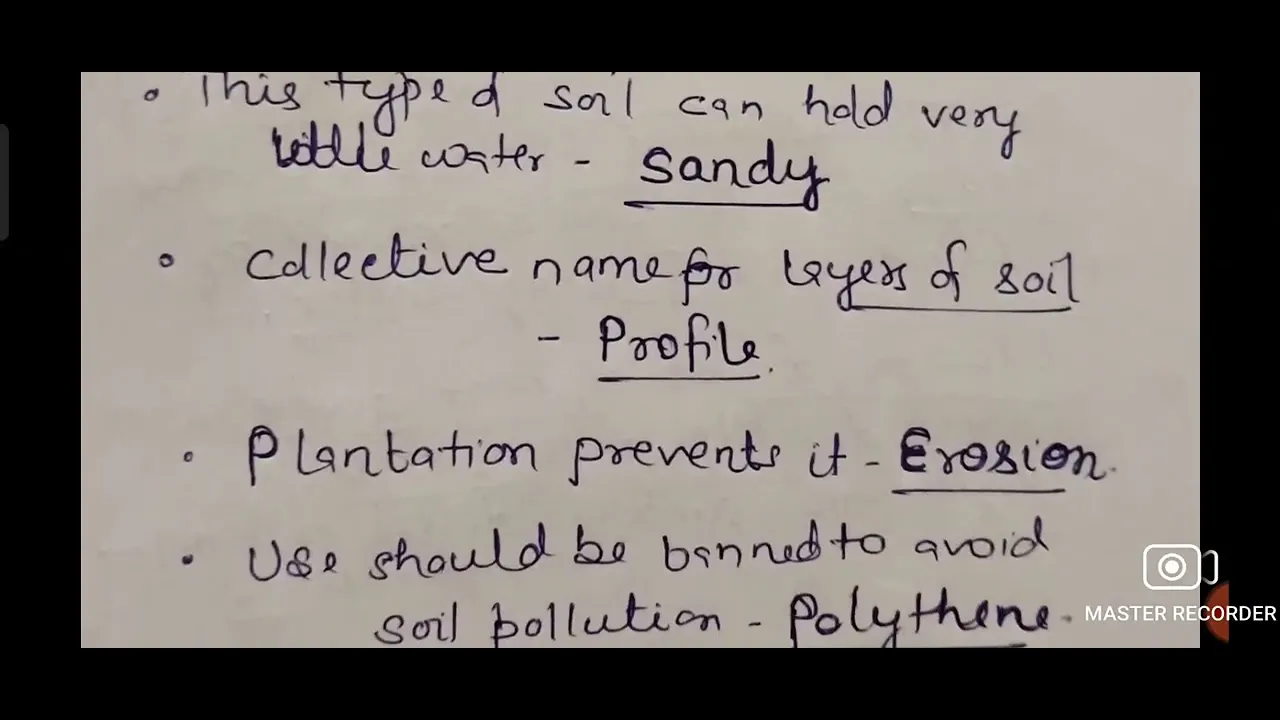 • This type of soil can hold very
little water - Sandy
• Collective name for layers of soil
- Profile.
• Plantation prevents it - Erosion.
• Use should be banned to avoid
soil pollution - Polythene.
MASTER RECORDER